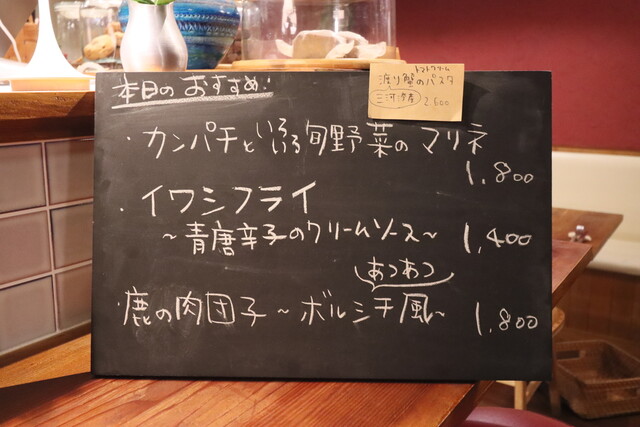 本日のおすすめ:
トマトクリーム
渡り蟹のパスタ
三河湾産 2600
・カンパチといろいろ旬野菜のマリネ
1,800
・イワシフライ
~青唐辛子のクリームソース~ 1,400
あつあつ
・鹿の肉団子~ボルシチ風~ 1,800